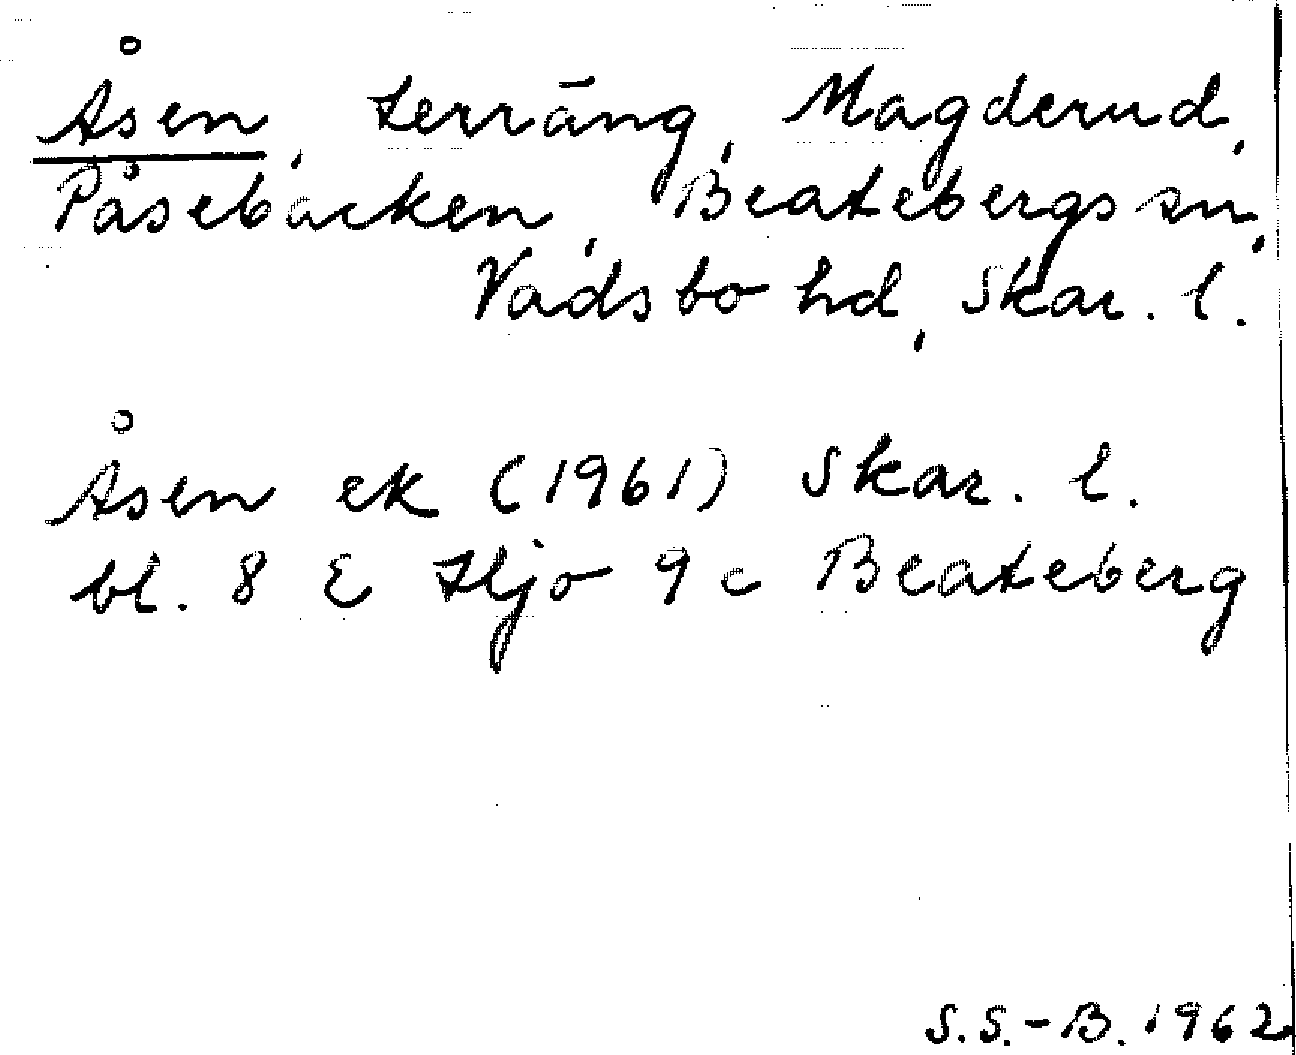 Åsen, terräng, Magderud,
Påsebacken, Beatebergs sn,
Vadsbo hd, Skar. l.
Åsen ek (1961) Skar. l.
bl. 8 E Hjo 9 c Beateberg
S.S.-B. 1962